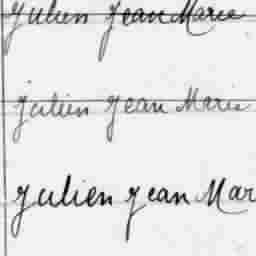 Julien Jean Marie
Julien Jean Marie
Julien Jean Mar